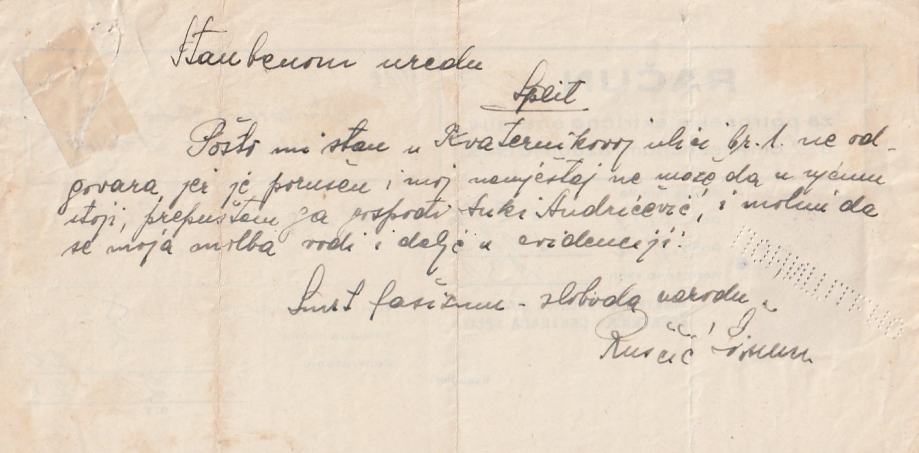 Stambenom uredu
Split
Pošto mi stan u Kvaternikovoj ulici br. 1. ne od-
govara, jer je porušen i moj namještaj ne može da u njemu
stoji, prepuštam ga gospođi Anki Andrićević, i molim da
se moja molba vodi i dalje u evidenciji.
Smrt fašizmu - sloboda narodu.
Ruščić Šimun
RAČUN